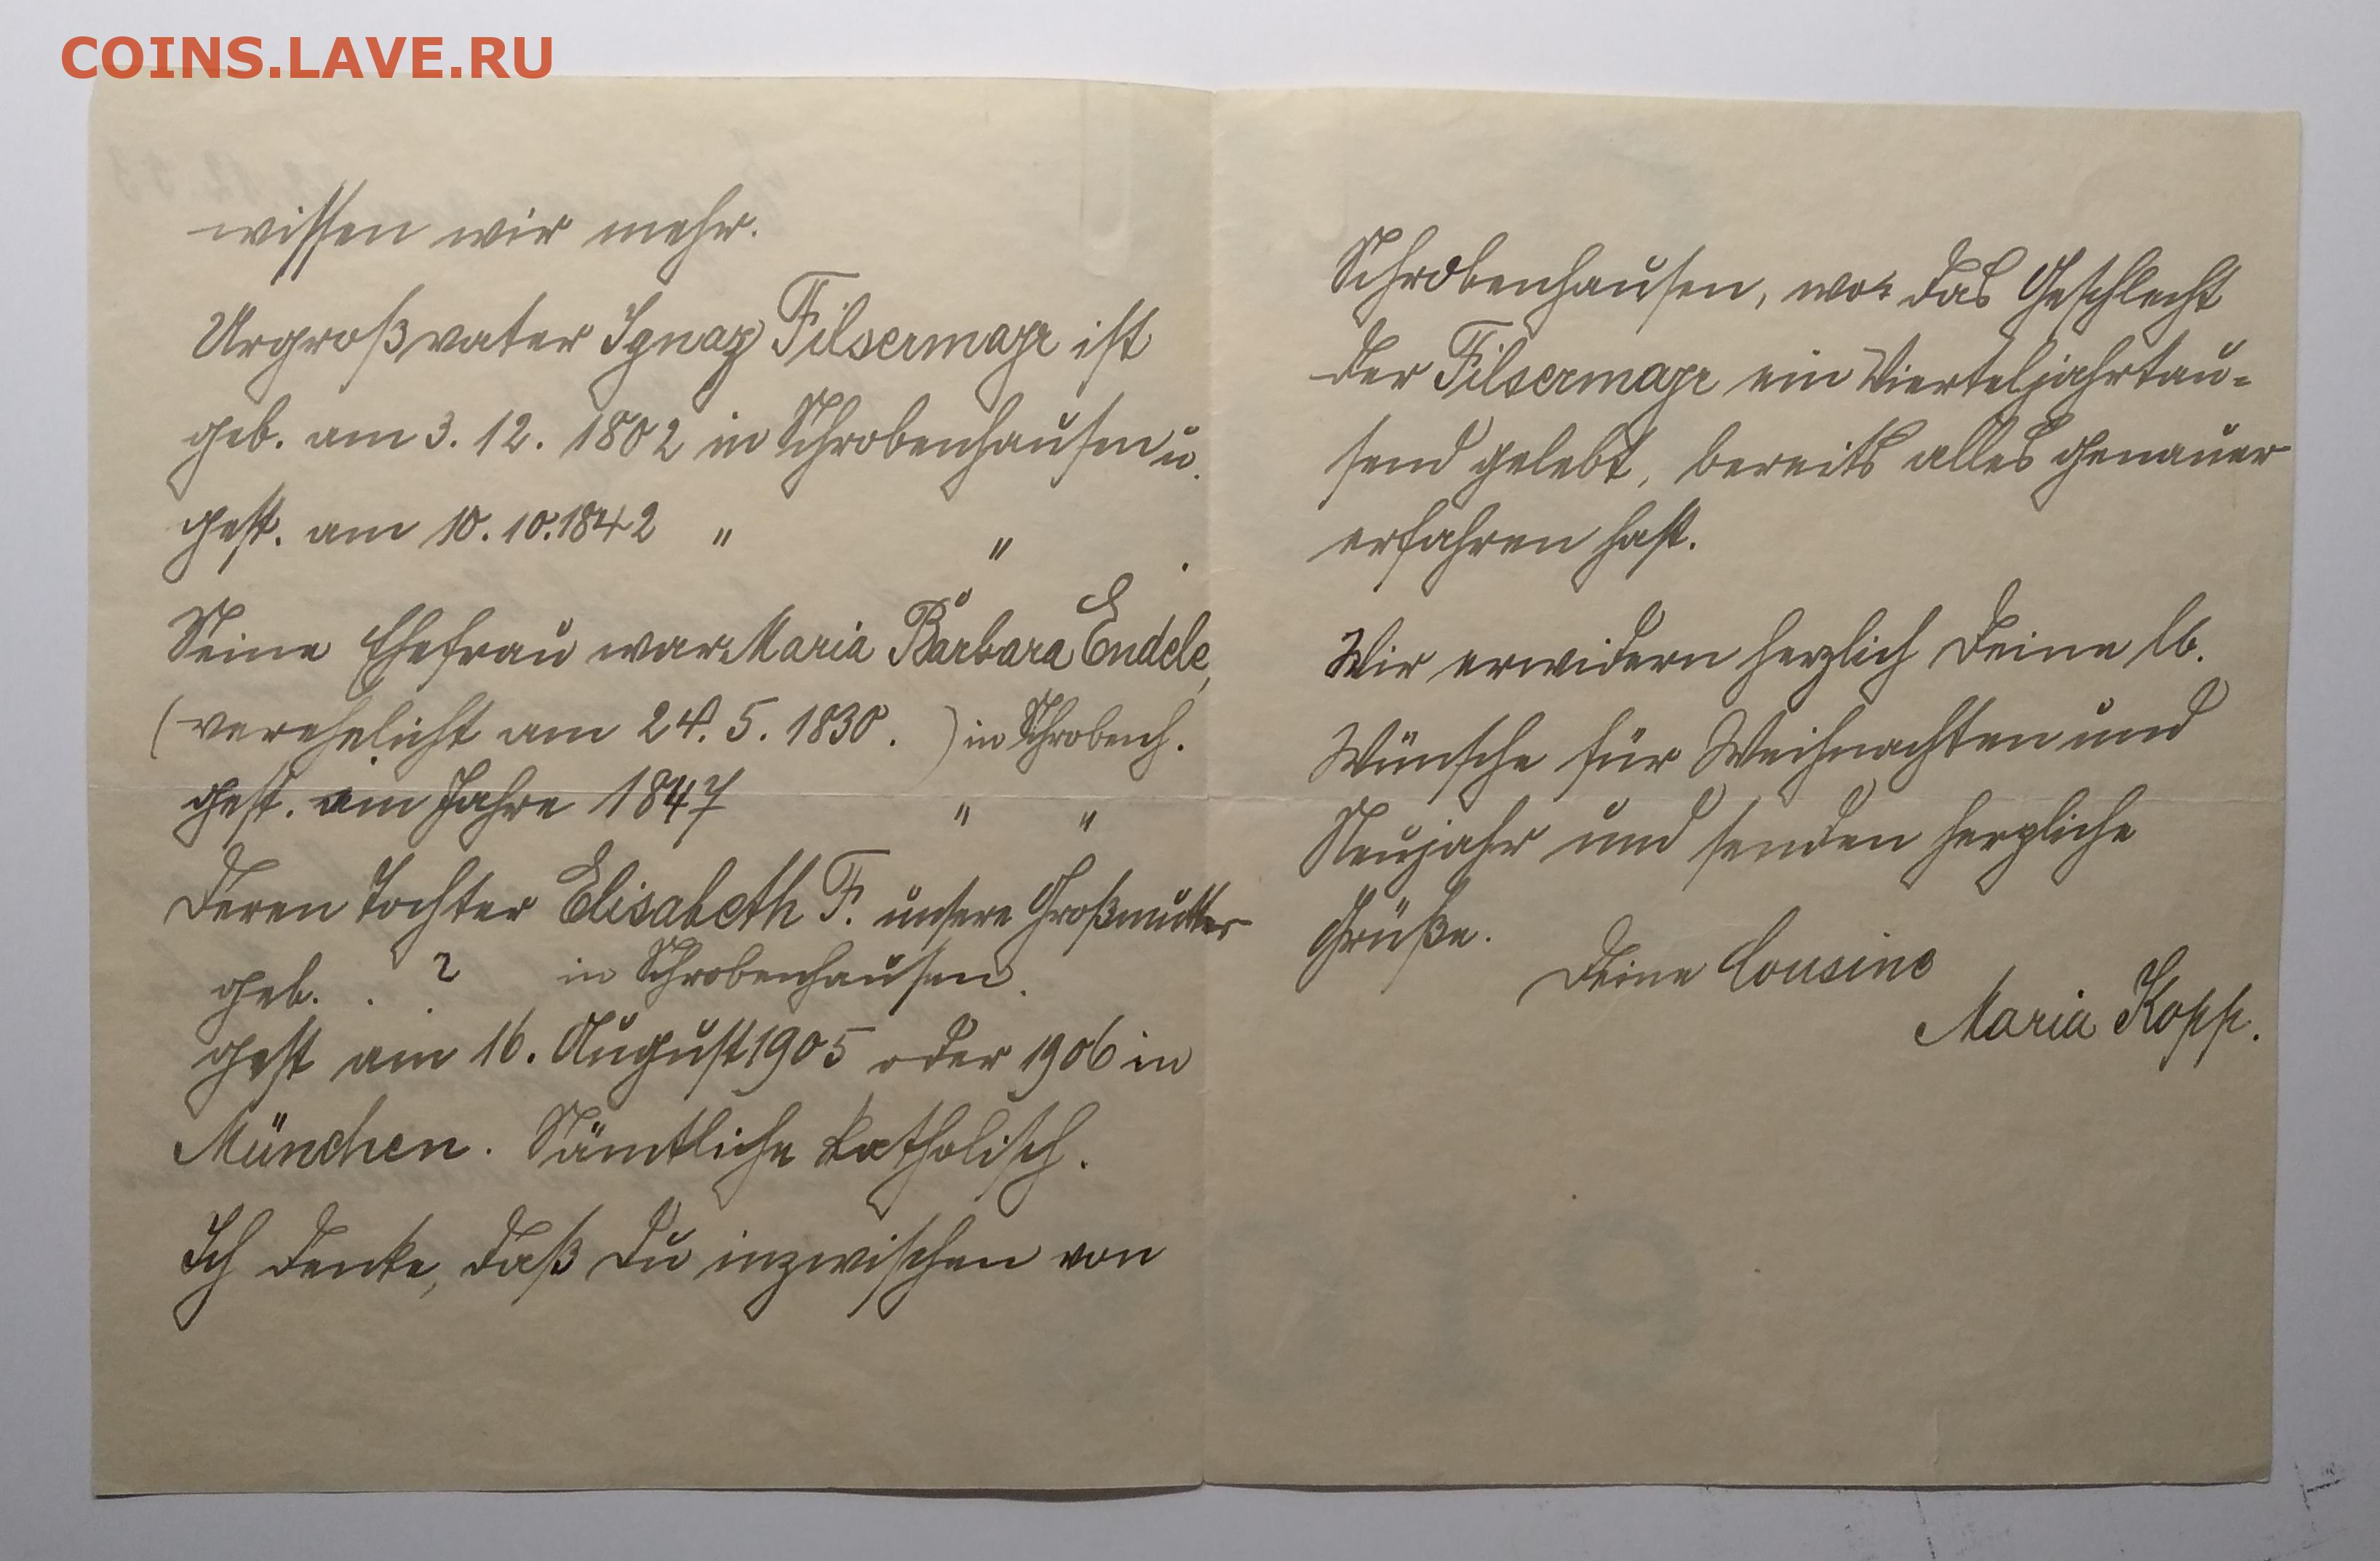 COINS.LAVE.RU
wissen wir mehr.
Urgroßvater Ignaz Filsermayr ist
geb. am 3. 12. 1802 in Schrobenhausen u.
gest. am 10. 10. 1842 " " .
Seine Ehefrau war Maria Barbara Endele,
(verehelicht am 24. 5. 1830. ) in Schrobenh.
gest. im Jahre 1847 " "
Deren Tochter Elisabeth F. unsere Großmutter
geb. . ? in Schrobenhausen.
gest am 16. August 1905 oder 1906 in
München. Sämtliche katholisch.
Ich denke, daß Du inzwischen von
Schrobenhausen, wo das Geschlecht
der Filsermayr ein Vierteljahrtau=
send gelebt, bereits alles genauer
erfahren hast.
Wir erwidern herzlich Deine lb.
Wünsche für Weihnachten und
Neujahr und senden herzliche
Grüße.
Deine Cousine
Maria Kopp.